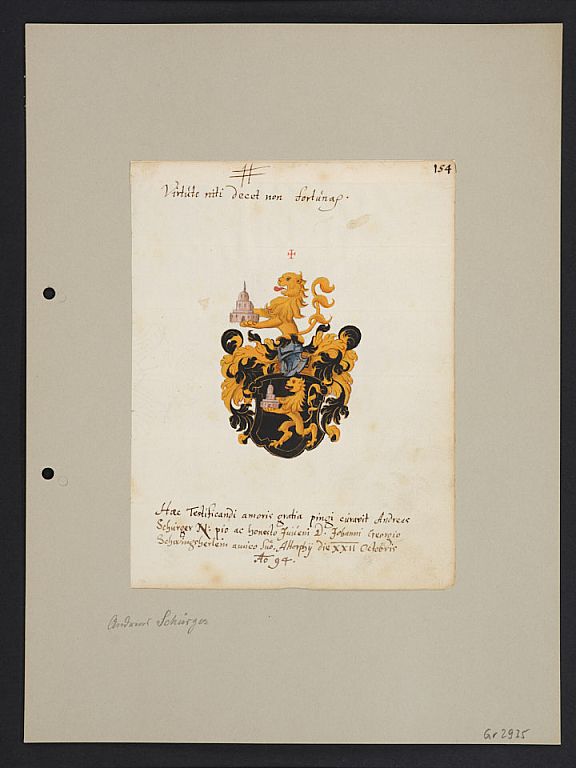 154
Virtute niti decet non fortunae.
Haec Testificandi amoris gratia pingi curavit Andreas
Schürger N: pio ac honesto Juveni D: Johanni Georgio
amico suo, Altorphij die XXII Octobris
Ao 94.
Andreas Schürger
Gr 2935